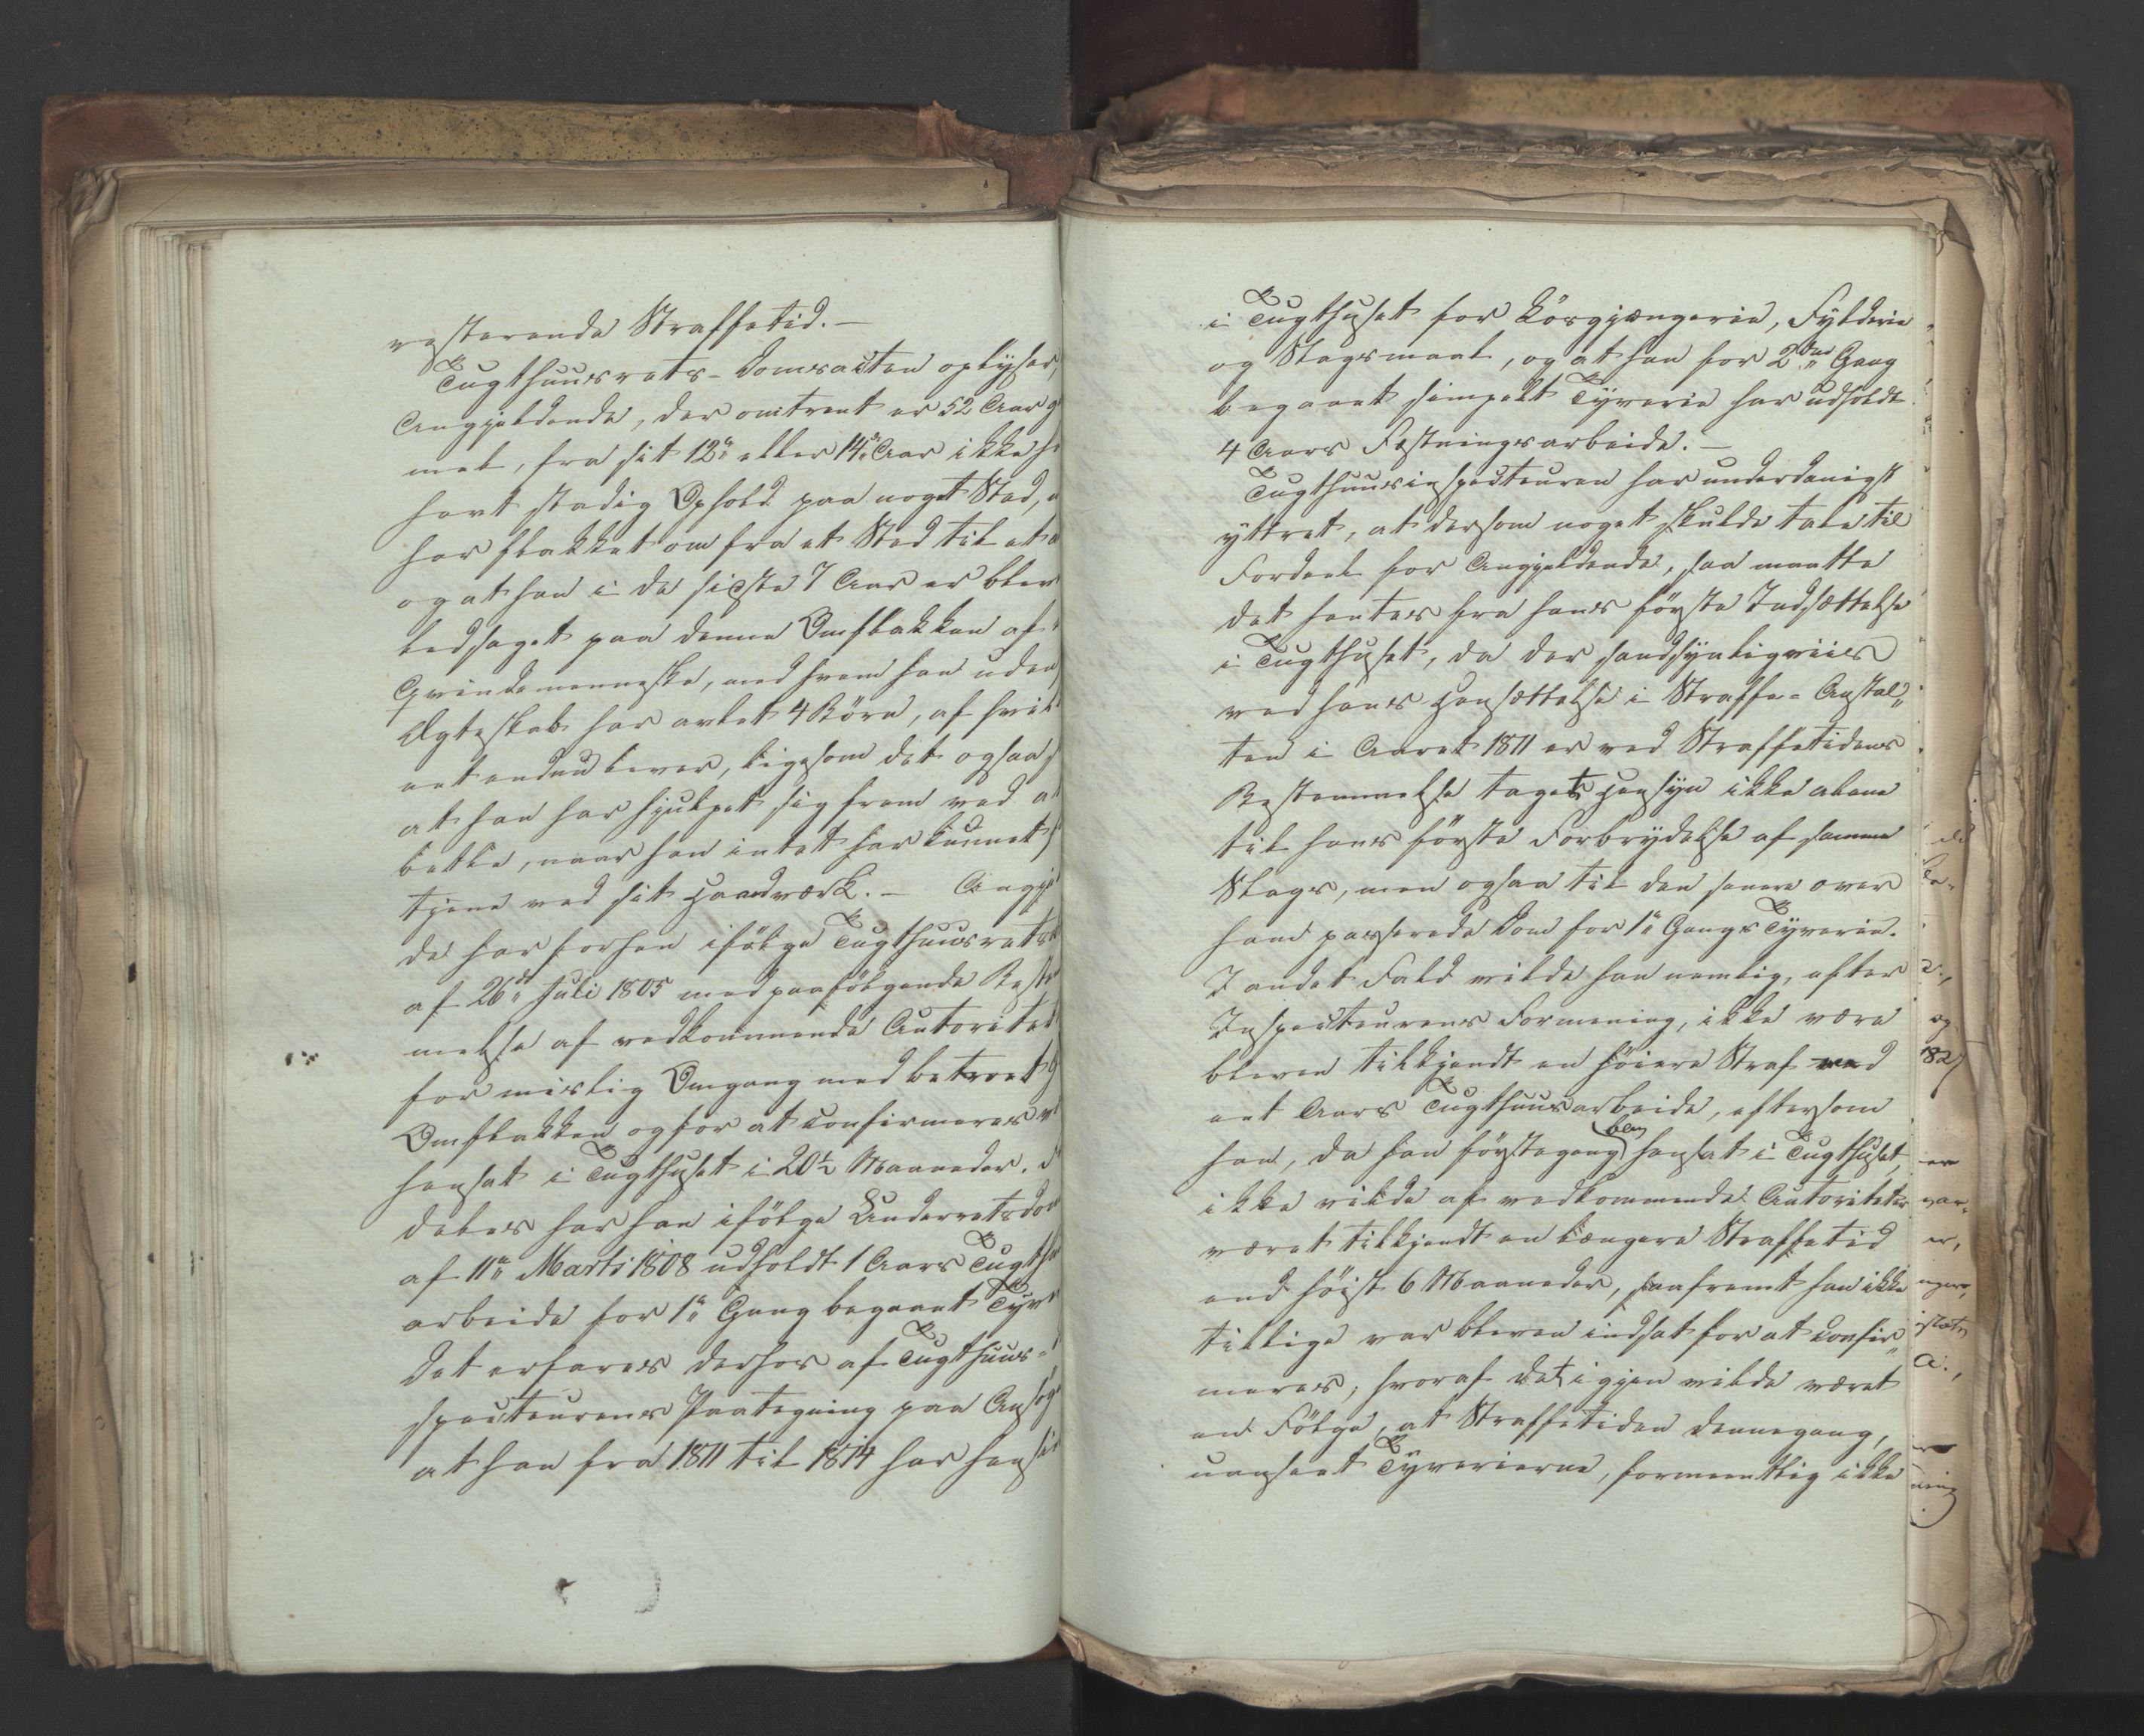 resterende Straffetid. —
Tugthuusrets-Domsacten oplyser,
Angjeldende, der omtrent er 52 Aar g
mel, fra sit 12te eller 14de Aar ikke h
havt stadig Ophold paa noget Sted,
har flakket om fra et Sted til et a
og at han i de sidste 7 Aar er blev
ledsaget paa denne Omflakken af
Qvindemenneske, med hvem han uden
Ægteskab har avlet 4 Börn, af hvil
eet endnu lever, ligesom det ogsaa
at han har hjulpet sig frem ved at
betle, naar han intet har kunnet
tjene ved sit Haandværk. — Angjel
de har forhen ifölge Tugthuusrets
af 26de Juli 1805 med paafölgende Beste
melse af vedkommende Autoritet
for mislig Omgang med betroet G
Omflakken og for at confirmeres
hensat i Tugthuset i 20½ Maaneder.
deles har han ifölge Underretsdom
af 11te Marti 1808 udholdt 1 Aars Tugth
arbeide for 1te Gang begaaet Tyve
Det erfares derhos af Tugthuus-
specteurens Paategning paa Ansög
at han fra 1811 til 1814 har hens
i Tugthuset for Lösgjængerie, Fylderie
og Slagsmaal, og at han for 2den Gang
begaaet simpelt Tyverie har udholdt
4 Aars Fæstningsarbeide. —
Tugthuusinspecteuren har underdanigst
yttret, at dersom noget skulde tale til
Fordeel for Angjeldende, saa maatte
det hentes fra hans förste Indsættelse
i Tugthuset, da der sandsynligviis
ved hans Hensættelse i Straffe-Anstal„
ten i Aaret 1811 er ved Straffetidens
Bestemmelse taget Hensyn ikke alene
til hans förste Forbrydelse af samme
Slags, men ogsaa til den senere over
ham passerede Dom for 1te Gangs Tyverie.
I andet Fald vilde han nemlig, efter
Inspecteurens Formening, ikke være
bleven tilkjendt en höiere Straf end
eet Aars Tugthuusarbeide, eftersom
han, da han förstegang blev hensat i Tugthuset,
ikke vilde af vedkommende Autoriteter
været tilkjendt en længere Straffetid
end höist 6 Maaneder, saafremt han ikke
tillige var bleven indsat for at confir„
meres, hvoraf det igjen vilde været
en Fölge, at Straffetiden dennegang,
uanseet Tyverierne, formeentlig ikke